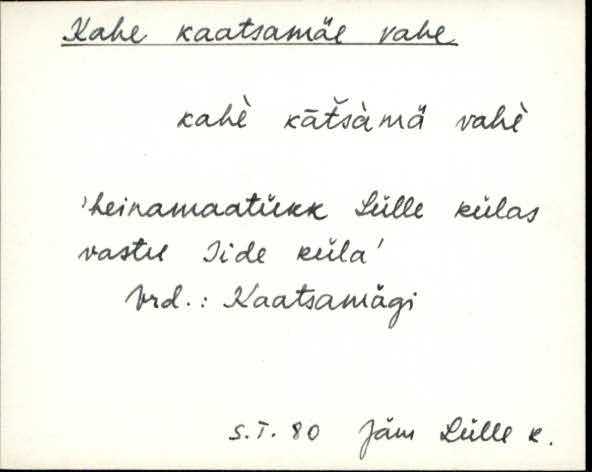 Kahe kaatsamäe vahe
kahè kāt̆sàmä vahè
'heinamaatükk Lülle külas
vastu Iide küla'
Vrd.: Kaatsamägi
S.T. 80 Jäm Lülle k.